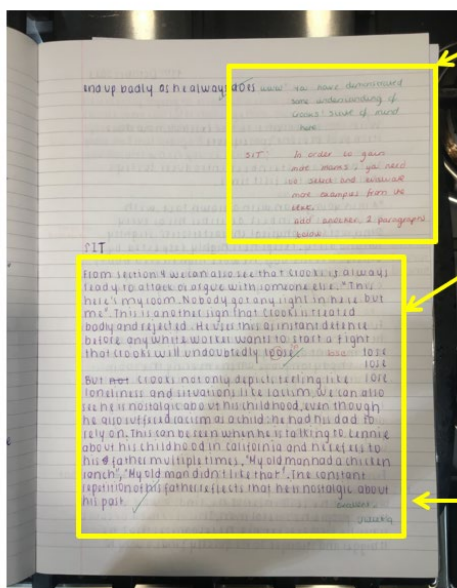 end up badly as he always does
WWW: You have demonstrated
some understanding of
Crooks' state of mind
here.
SIT: In order to gain
more marks, you need
to select and evaluate
more examples from the
text.
Add another 2 paragraphs
below
SIT
From section 4 we can also see that Crooks is always
ready to attack or argue with someone else. "This
here's my room. Nobody got any right in here but
me". This is another sign that Crooks is treated
badly and rejected. He uses this as instant defence
before any white worker wants to start a fight
that Crooks will undoubtedly loose. lose lose
lose
But not Crooks not only depicts feeling like lose
loneliness and situations like racism, we can also
see he is nostalgic about his childhood, even though
he also suffered racism as a child, he had his dad to
rely on. This can be seen when he is talking to Lennie
about his childhood in California and he refers to
his father multiple times. "My old man had a chicken
ranch", "My old man didn't like that". The constant
repetition of his father reflects that he is nostalgic about
his past.